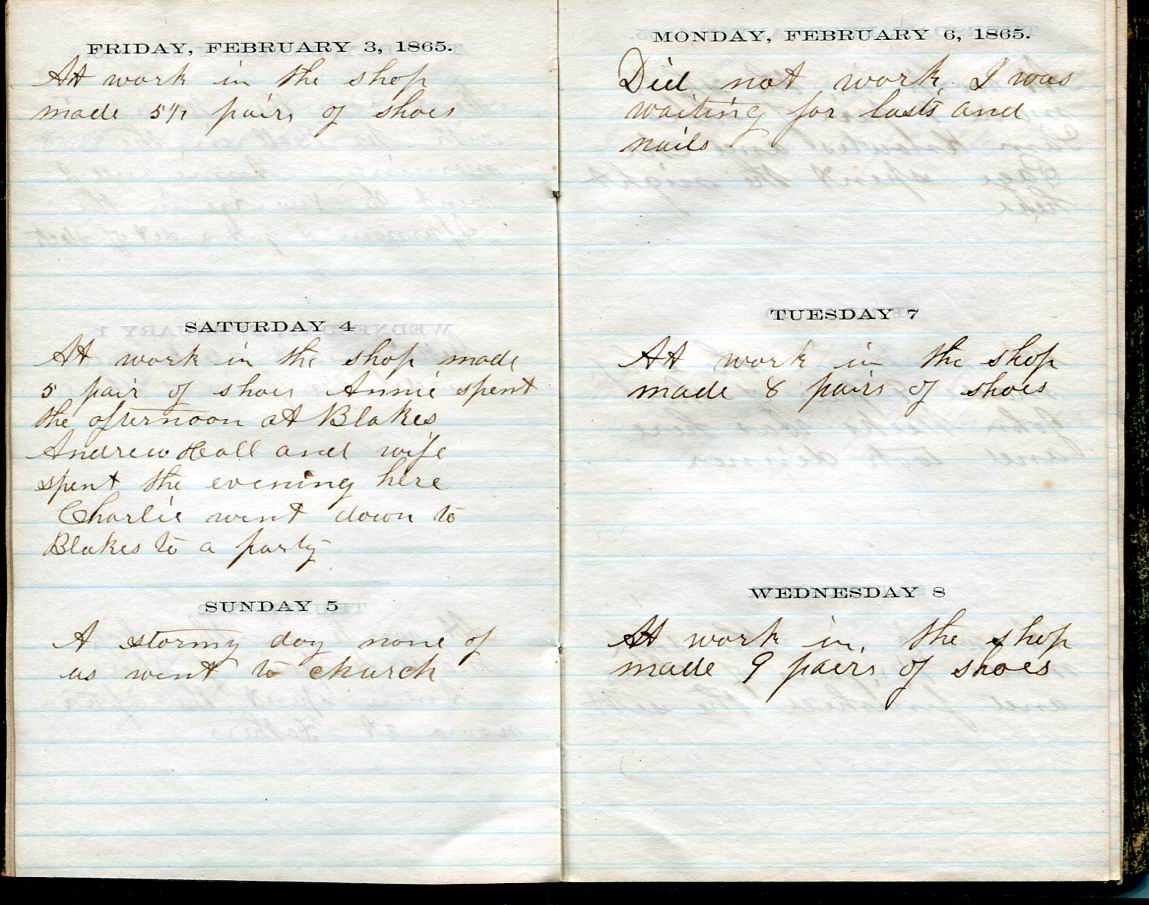 FRIDAY, FEBRUARY 3, 1865.
At work in the shop
made 5½ pairs of shoes
SATURDAY 4
At work in the shop made
5 pair of shoes Annie spent
the afternoon at Blakes
Andrew Hall and wife
spent the evening here
Charlie went down to
Blakes to a party
SUNDAY 5
A stormy day none of
us went to church
MONDAY, FEBRUARY 6, 1865.
Did not work I was
waiting for lasts and
nails
TUESDAY 7
At work in the shop
made 8 pairs of shoes
WEDNESDAY 8
At work in the shop
made 9 pairs of shoes